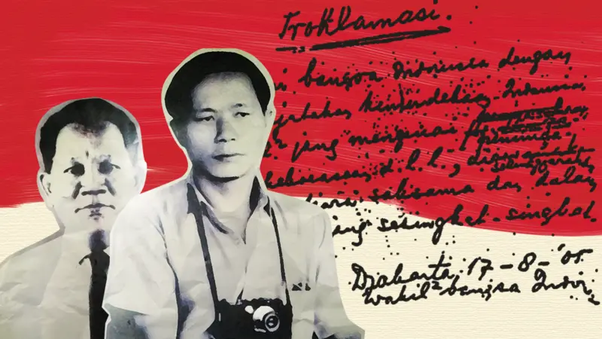 Proklamasi.
i bangsa Indonesia dengan
jatakan kemerdekaan Indonesia.
jang mengenai
kekoeasaan d.l.l., diselenggarakan
tjara saksama dan dalam
jang sesingkat-singkat
Djakarta, 17-8-'05
Wakil2 bangsa Indon